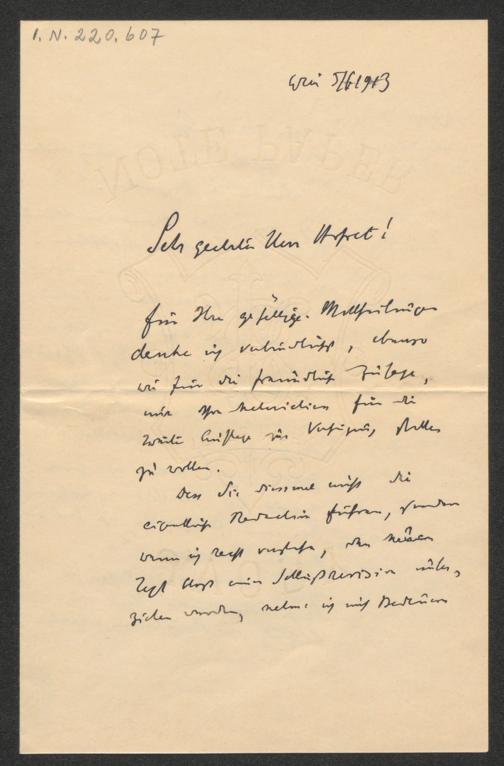 I. N. 220.607
Wien 5/6 1913
NOTE PAPER
Sehr geehrter Herr Hofrat!
für Ihre gefällige Mittheilungen
danke ich verbindlichst, ebenso
wie für die freundliche Zusage,
mir Ihr Material für die
zweite Auflage zur Verfügung stellen
zu wollen.
Dass Sie diesmal nicht die
eigentliche Redaction führen, sondern
wenn ich recht verstehe, den neuen
Text bloß einer Schlußrevision unter-
ziehen werden, nehme ich mit Bedauern